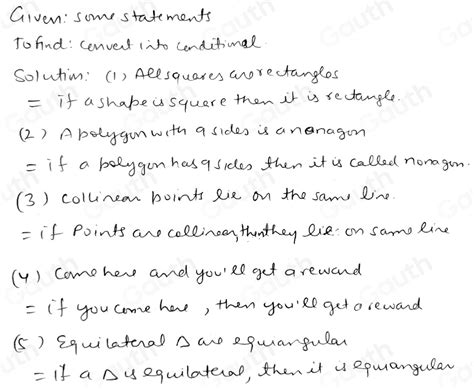 Given: some statements
To find: convert into conditional.
Solution: (1) All squares are rectangles
= if a shape is square then it is rectangle.
(2) A polygon with 9 sides is a nonagon
= if a polygon has 9 sides then it is called nonagon.
(3) collinear points lie on the same line.
= if Points are collinear, then they lie on same line
(4) Come here and you'll get a reward
= if you come here, then you'll get a reward
(5) Equilateral Δ are equiangular
= If a Δ is equilateral, then it is equiangular